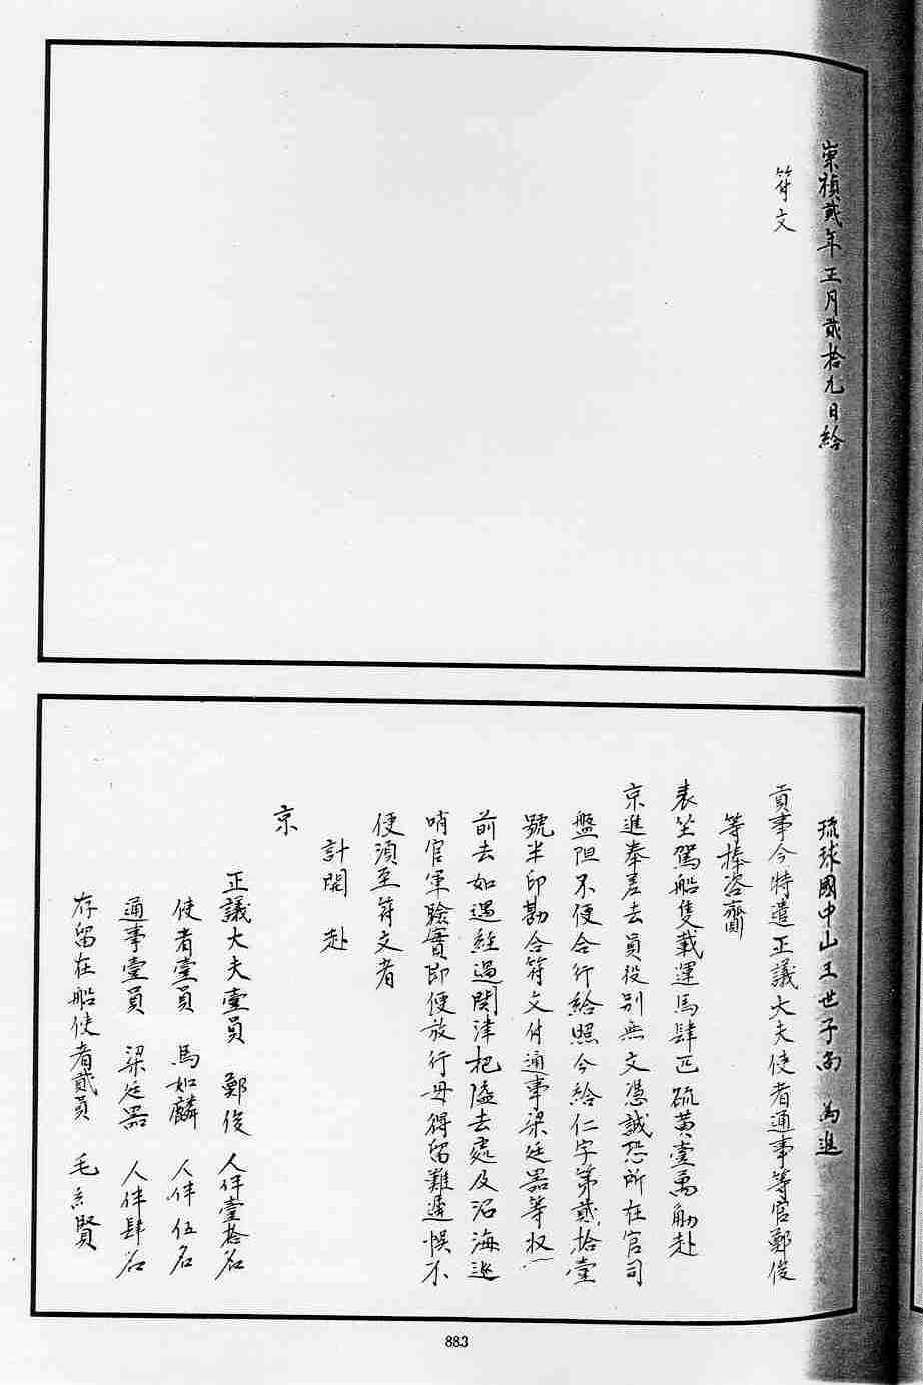 崇禎貳年正月貳拾九日給
符文
琉球國中山王世子尚 為進
貢事今特遣正議大夫使者通事等官鄭俊
等捧咨齎
表坐駕船隻載運馬肆匹硫黃壹萬觔赴
京進奉差去員役別無文憑誠恐所在官司
盤阻不便合行給照今給仁字第貳拾壹
號半印勘合符文付通事梁廷器等收
前去如遇經過關津把隘去處及沿海巡
哨官軍驗實即便放行毋得留難遲悞不
便須至符文者
計開赴
京
正議大夫壹員 鄭俊 人伴壹拾名
使者壹員 馬如麟 人伴伍名
通事壹員 梁廷器 人伴肆名
存留在船使者貳員 毛 賢
883